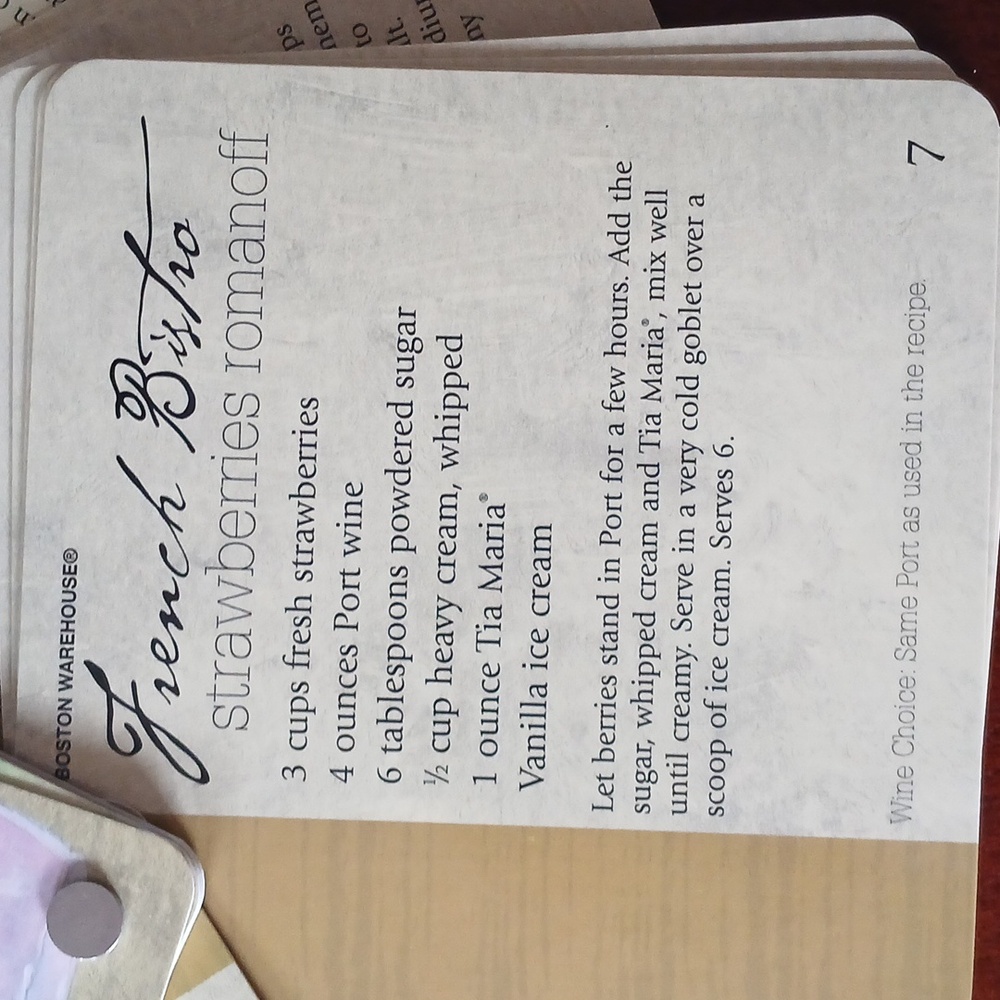 BOSTON WAREHOUSE®
French Bistro
strawberries romanoff
3 cups fresh strawberries
4 ounces Port wine
6 tablespoons powdered sugar
½ cup heavy cream, whipped
1 ounce Tia Maria®
Vanilla ice cream
Let berries stand in Port for a few hours. Add the
sugar, whipped cream and Tia Maria®, mix well
until creamy. Serve in a very cold goblet over a
scoop of ice cream. Serves 6.
Wine Choice: Same Port as used in the recipe.
7